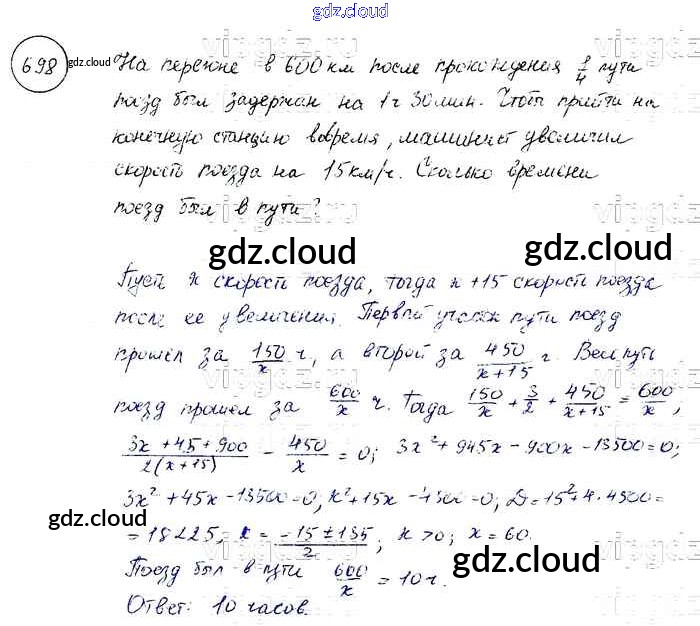 gdz.cloud
698 gdz.cloud На перегоне в 600 км после прохождения 1/4 пути
поезд был задержан на 1 ч 30 мин. Чтобы прийти на
конечную станцию вовремя, машинист увеличил
скорость поезда на 15 км/ч. Сколько времени
поезд был в пути?
gdz.cloud gdz.cloud
Пусть x скорость поезда, тогда x+15 скорость поезда
после ее увеличения. Первый участок пути поезд
прошёл за 150/x ч, а второй за 450/(x+15) ч. Весь путь
поезд прошёл за 600/x ч. Тогда 150/x + 3/2 + 450/(x+15) = 600/x;
(3x+45+900)/(2(x+15)) - 450/x = 0; 3x²+945x-900x-13500=0;
3x²+45x-13500=0; x²+15x-4500=0; D=15²+4·4500=
gdz.cloud
=18225; x = (-15±135)/2; x>0; x=60.
gdz.cloud
Поезд был в пути 600/x = 10 ч.
Ответ: 10 часов.